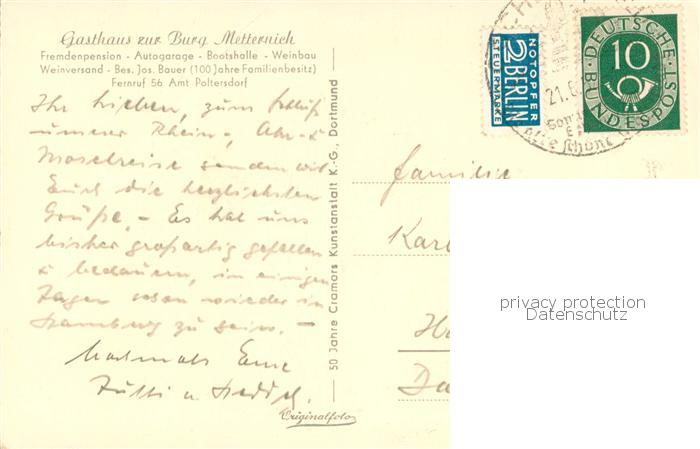 Gasthaus zur Burg Metternich
Fremdenpension - Autogarage - Bootshalle - Weinbau
Weinversand - Bes. Jos. Bauer (100 Jahre Familienbesitz)
Fernruf 56 Amt Poltersdorf
Ihr Lieben, zum Schluß
unserer Rhein-, Ahr- u.
Moselreise senden wir
Euch die herzlichsten
Grüße. - Es hat uns
bisher großartig gefallen
u. bedauern, in einigen
Tagen schon wieder in
Hamburg zu sein. -
Nochmals Eure
u.
Originalfoto
50 Jahre Cramers Kunstanstalt K.-G., Dortmund
NOTOPFER
2 BERLIN
STEUERMARKE
DEUTSCHE
10
BUNDESPOST
21.
Familie
Kar
Ha
Da
privacy protection
Datenschutz